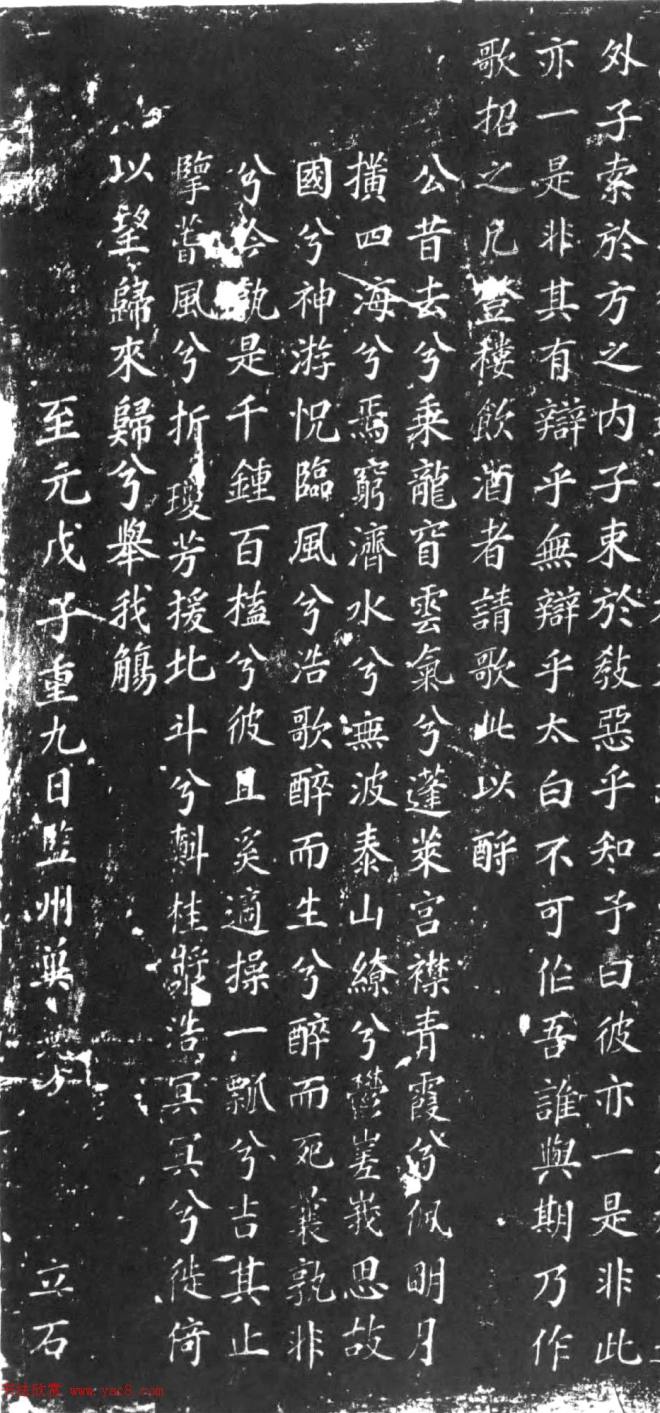 外子索於方之内子束於教惡乎知予曰彼亦一是非此
亦一是非其有辯乎無辯乎太白不可作吾誰與期乃作
歌招之凡登樓飲酒者請歌此以酹
公昔去兮乘龍窅雲氣兮蓬萊宫襟青霞兮佩明月
橫四海兮焉窮濟水兮無波泰山繚兮鬱嵳峩思故
國兮神游怳臨風兮浩歌醉而生兮醉而死曩孰非
兮今孰是千鍾百榼兮彼且奚適操一瓢兮吉其止
擥蕾風兮折瓊芳援北斗兮斟桂漿浩冥冥兮徙倚
以望歸來歸兮舉我觴
至元戊子重九日監州 立石
www.yac8.com